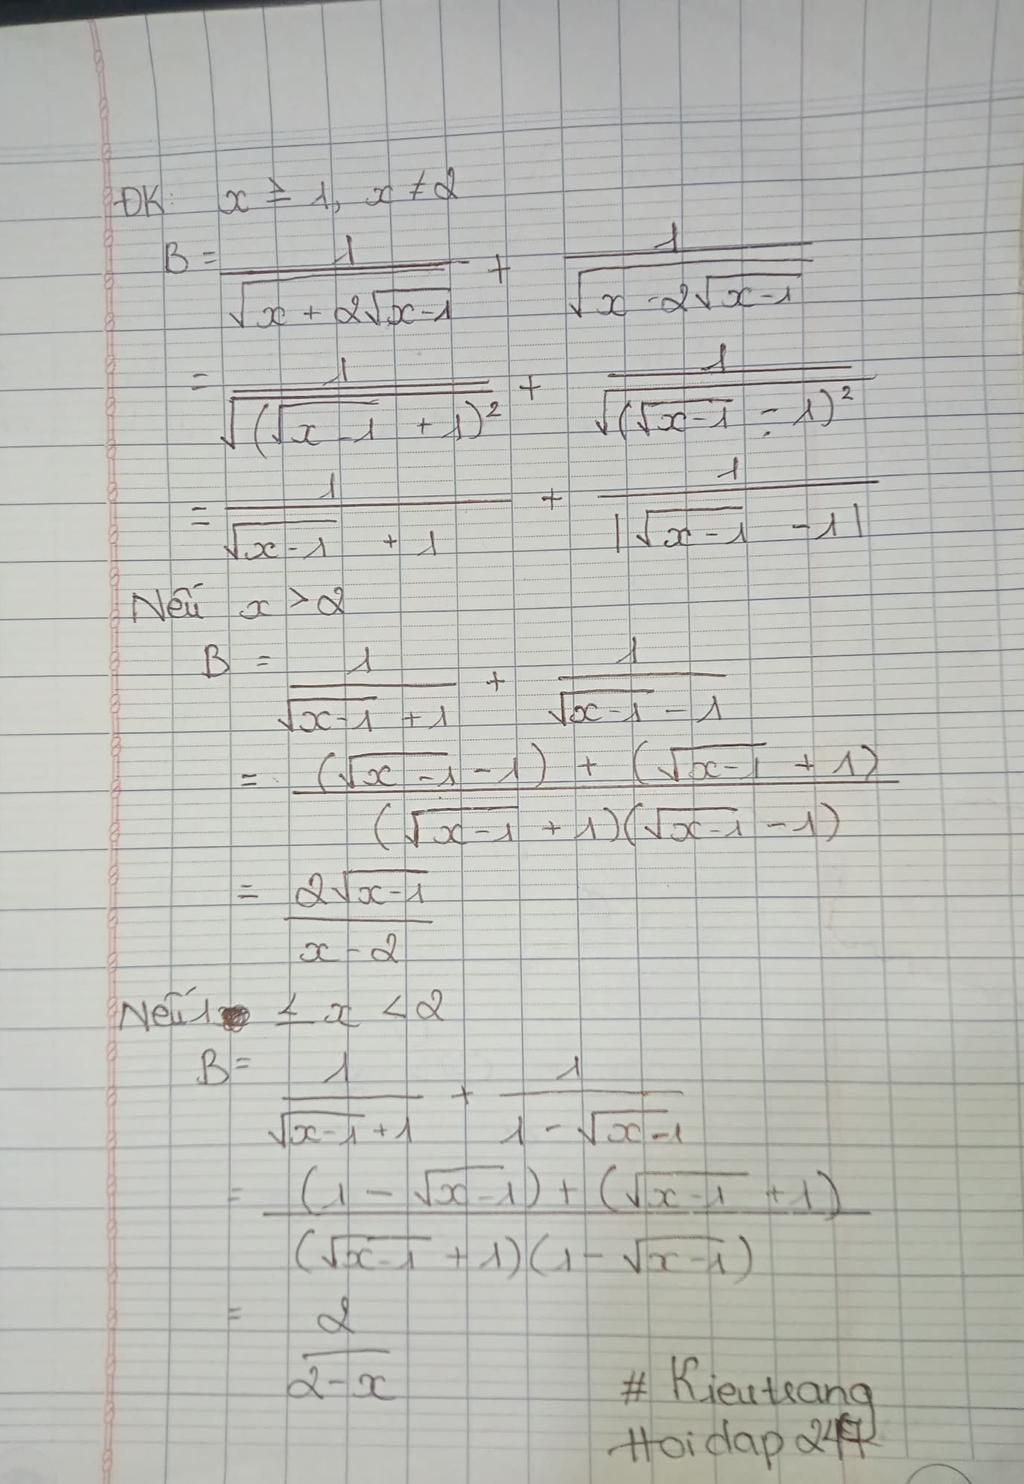 ĐK: x ≥ 1, x ≠ 2
B = 1/√(x + 2√(x-1)) + 1/√(x - 2√(x-1))
= 1/√((√(x-1) + 1)²) + 1/√((√(x-1) - 1)²)
= 1/(√(x-1) + 1) + 1/|√(x-1) - 1|
Nếu x > 2
B = 1/(√(x-1) + 1) + 1/(√(x-1) - 1)
= ((√(x-1) - 1) + (√(x-1) + 1))/((√(x-1) + 1)(√(x-1) - 1))
= 2√(x-1)/(x - 2)
Nếu 1 ≤ x < 2
B = 1/(√(x-1) + 1) + 1/(1 - √(x-1))
= ((1 - √(x-1)) + (√(x-1) + 1))/((√(x-1) + 1)(1 - √(x-1)))
= 2/(2 - x)
# Kieutrang
Hoidap 247